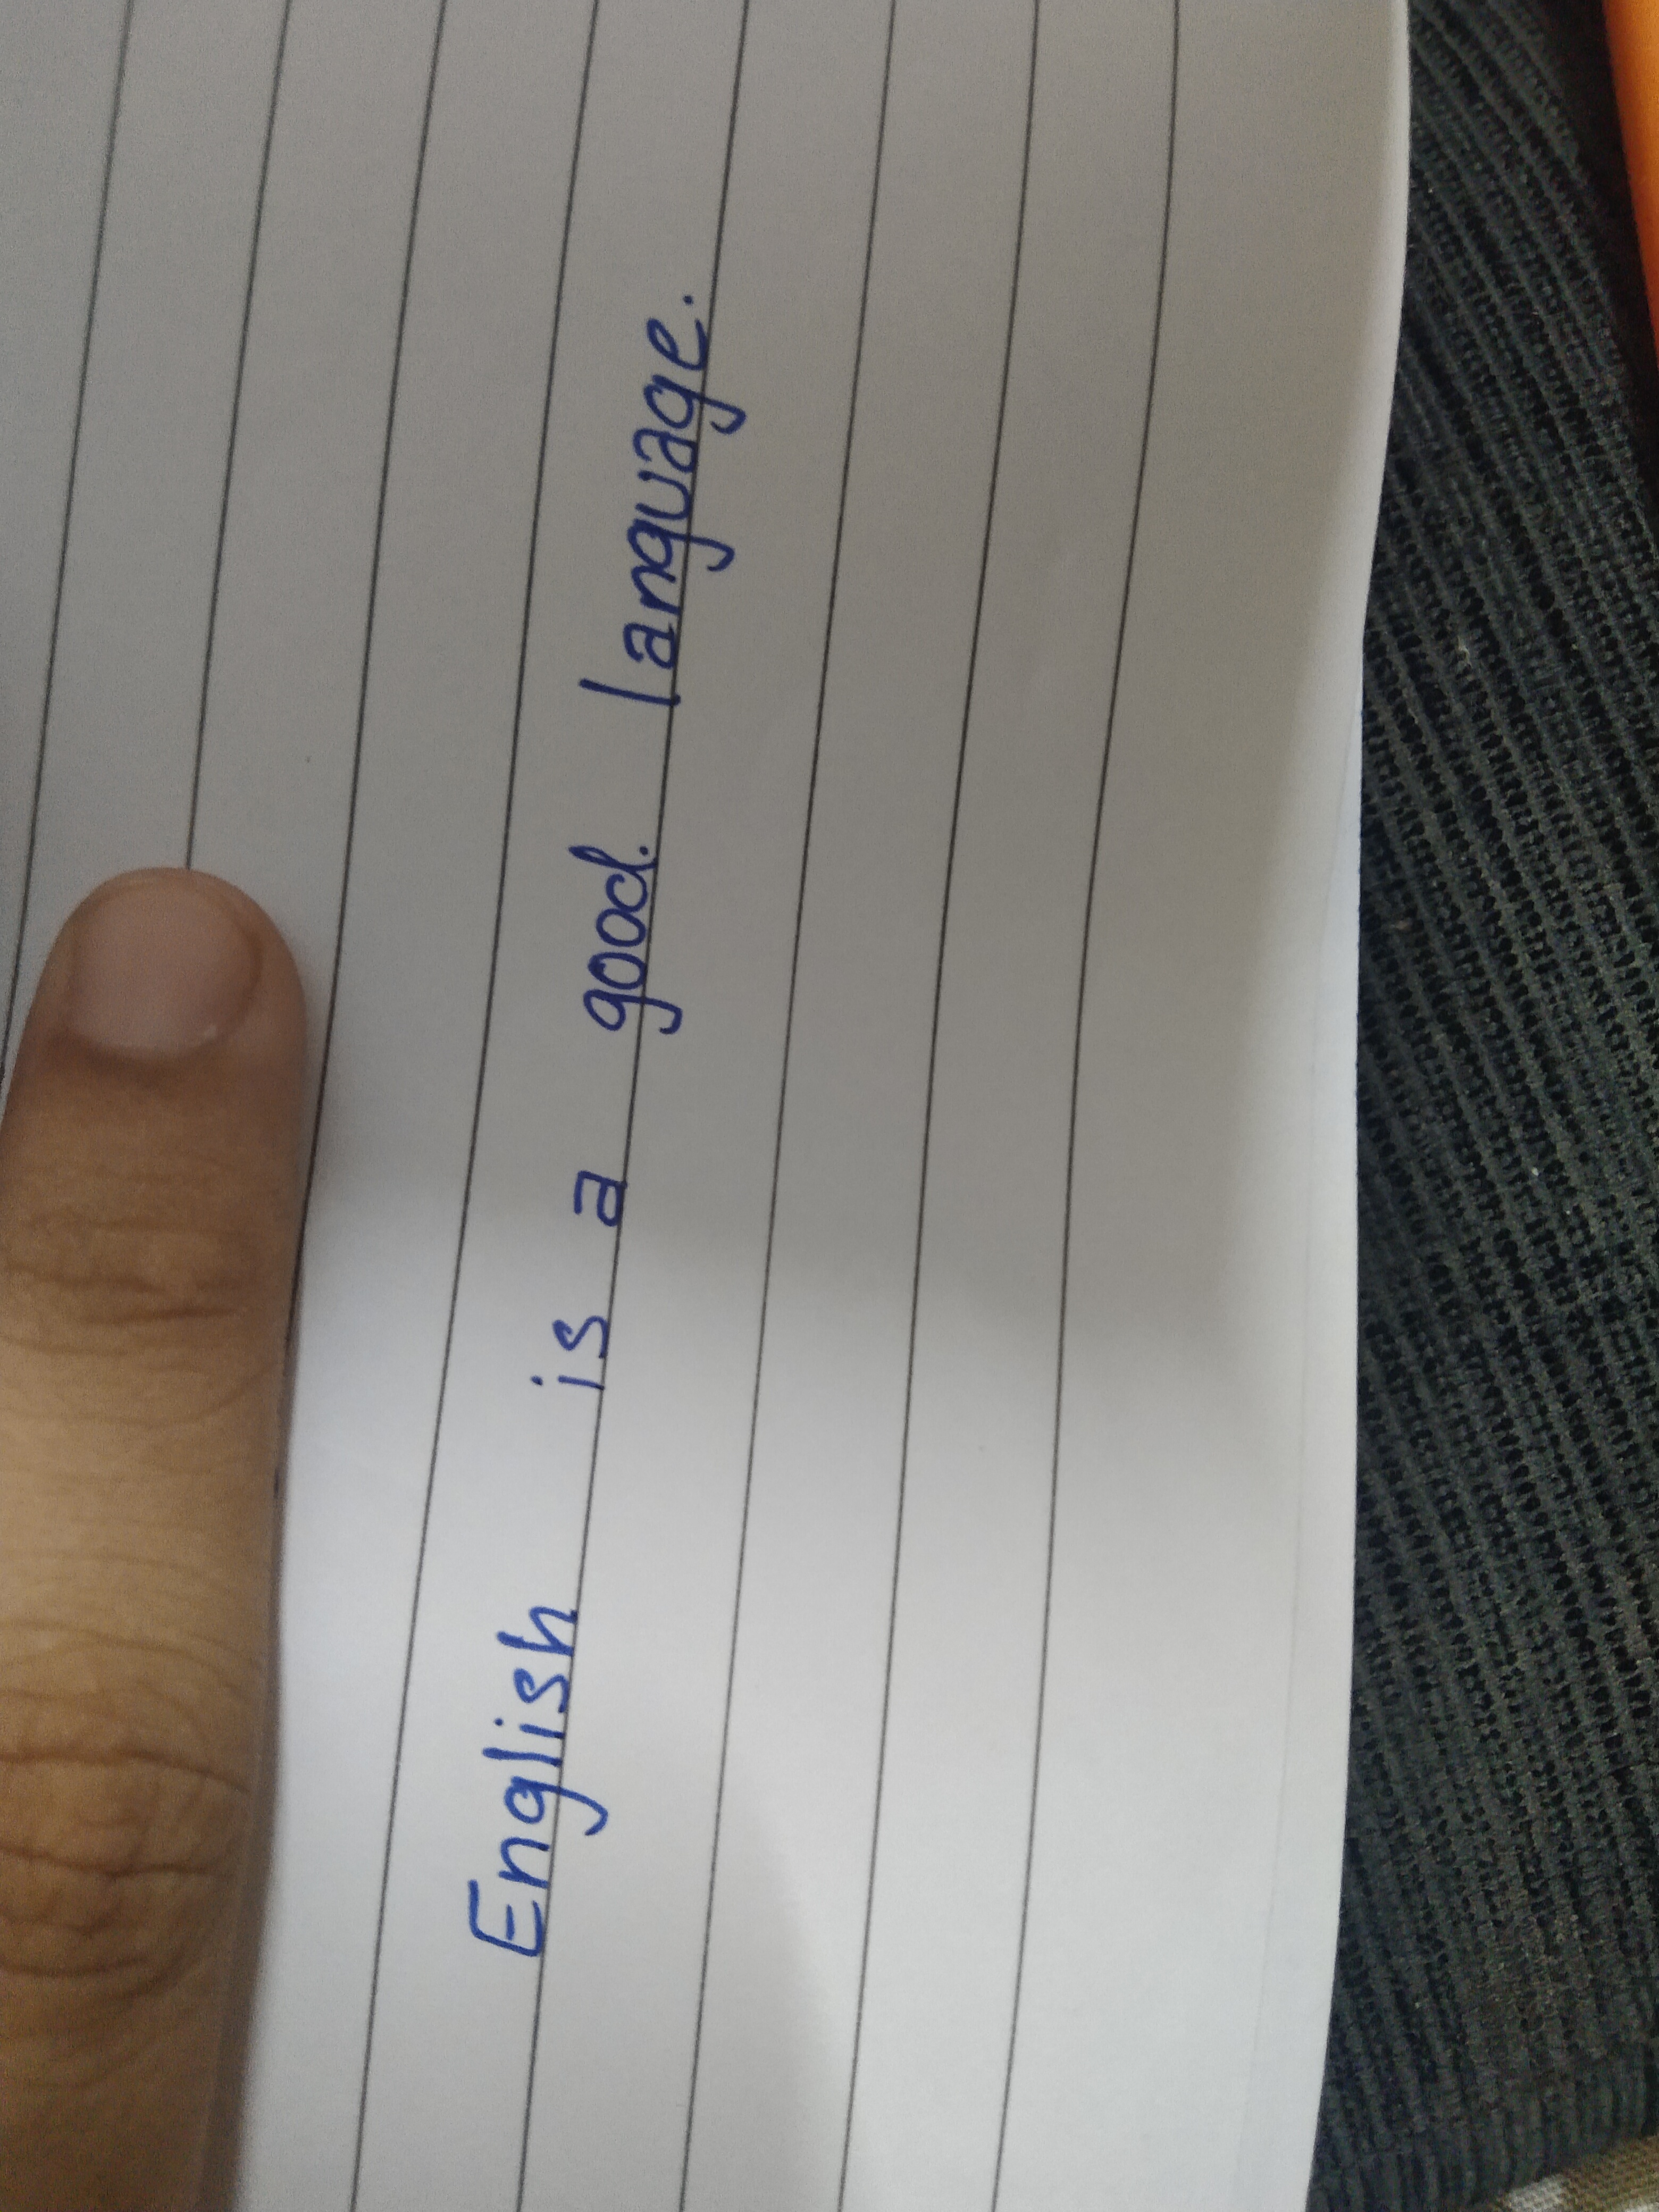 English is a good. language.